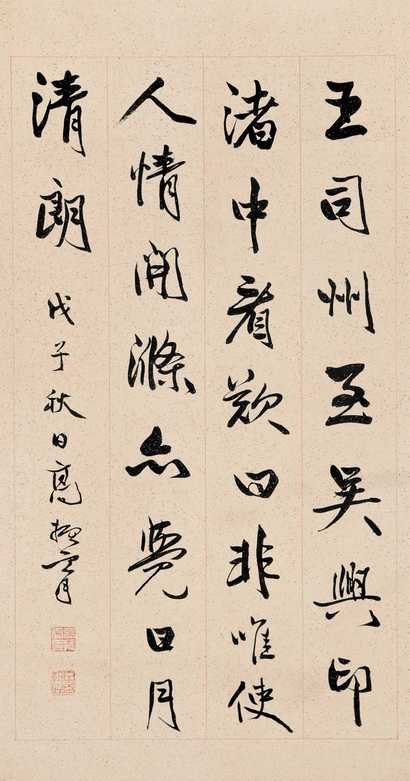 王司州至吴興印
渚中看歎曰非唯使
人情開滌亦覺日月
清朗
戊子秋日高振霄